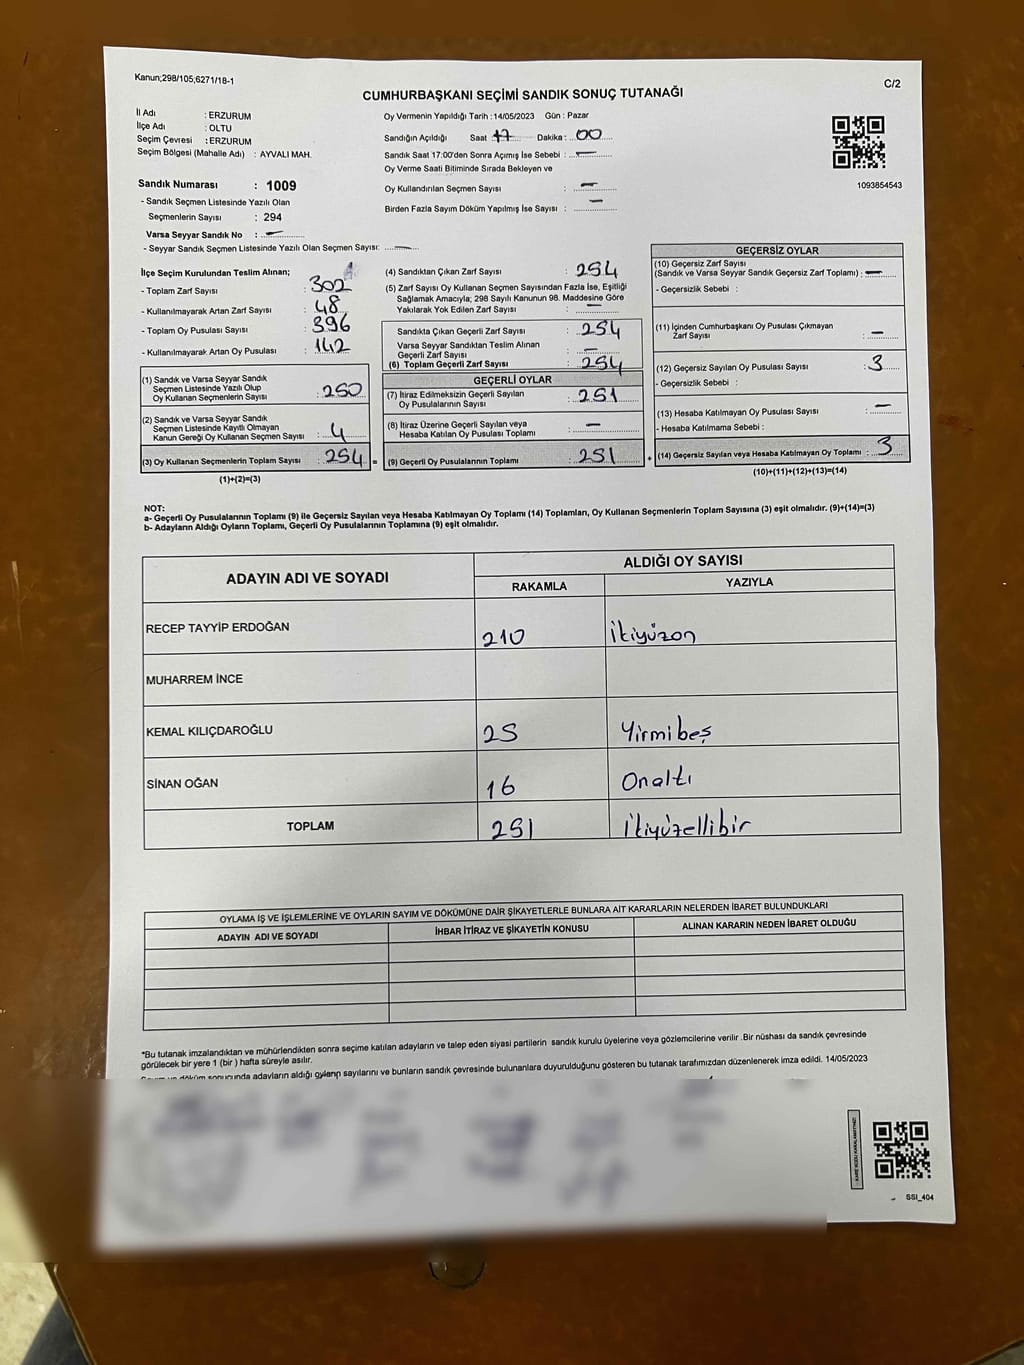 Kanun;298/105;6271/18-1
C/2
CUMHURBAŞKANI SEÇİMİ SANDIK SONUÇ TUTANAĞI
İl Adı : ERZURUM
İlçe Adı : OLTU
Seçim Çevresi : ERZURUM
Seçim Bölgesi (Mahalle Adı) : AYVALI MAH.
Sandık Numarası : 1009
- Sandık Seçmen Listesinde Yazılı Olan
Seçmenlerin Sayısı : 294
Varsa Seyyar Sandık No : —
- Seyyar Sandık Seçmen Listesinde Yazılı Olan Seçmen Sayısı: —
Oy Vermenin Yapıldığı Tarih : 14/05/2023 Gün : Pazar
Sandığın Açıldığı Saat : 17 Dakika : 00
Sandık Saat 17:00'den Sonra Açımış İse Sebebi : —
Oy Verme Saati Bitiminde Sırada Bekleyen ve
Oy Kullandırılan Seçmen Sayısı : —
Birden Fazla Sayım Döküm Yapılmış İse Sayısı : —
1093854543
İlçe Seçim Kurulundan Teslim Alınan;
- Toplam Zarf Sayısı : 302
- Kullanılmayarak Artan Zarf Sayısı : 48
- Toplam Oy Pusulası Sayısı : 396
- Kullanılmayarak Artan Oy Pusulası : 142
(1) Sandık ve Varsa Seyyar Sandık
Seçmen Listesinde Yazılı Olup
Oy Kullanan Seçmenlerin Sayısı : 250
(2) Sandık ve Varsa Seyyar Sandık
Seçmen Listesinde Kayıtlı Olmayan
Kanun Gereği Oy Kullanan Seçmen Sayısı : 4
(3) Oy Kullanan Seçmenlerin Toplam Sayısı : 254 =
(1)+(2)=(3)
(4) Sandıktan Çıkan Zarf Sayısı : 254
(5) Zarf Sayısı Oy Kullanan Seçmen Sayısından Fazla İse, Eşitliği
Sağlamak Amacıyla; 298 Sayılı Kanunun 98. Maddesine Göre
Yakılarak Yok Edilen Zarf Sayısı : —
Sandıkta Çıkan Geçerli Zarf Sayısı : 254
Varsa Seyyar Sandıktan Teslim Alınan
Geçerli Zarf Sayısı : —
(6) Toplam Geçerli Zarf Sayısı : 254
GEÇERLİ OYLAR
(7) İtiraz Edilmeksizin Geçerli Sayılan
Oy Pusulalarının Sayısı : 251
(8) İtiraz Üzerine Geçerli Sayılan veya
Hesaba Katılan Oy Pusulası Toplamı : —
(9) Geçerli Oy Pusulalarının Toplamı : 251 +
GEÇERSİZ OYLAR
(10) Geçersiz Zarf Sayısı
(Sandık ve Varsa Seyyar Sandık Geçersiz Zarf Toplamı) : —
- Geçersizlik Sebebi :
(11) İçinden Cumhurbaşkanı Oy Pusulası Çıkmayan
Zarf Sayısı : —
(12) Geçersiz Sayılan Oy Pusulası Sayısı : 3
- Geçersizlik Sebebi :
(13) Hesaba Katılmayan Oy Pusulası Sayısı : —
- Hesaba Katılmama Sebebi :
(14) Geçersiz Sayılan veya Hesaba Katılmayan Oy Toplamı : 3
(10)+(11)+(12)+(13)=(14)
NOT:
a- Geçerli Oy Pusulalarının Toplamı (9) ile Geçersiz Sayılan veya Hesaba Katılmayan Oy Toplamı (14) Toplamları, Oy Kullanan Seçmenlerin Toplam Sayısına (3) eşit olmalıdır. (9)+(14)=(3)
b- Adayların Aldığı Oyların Toplamı, Geçerli Oy Pusulalarının Toplamına (9) eşit olmalıdır.
ADAYIN ADI VE SOYADI ALDIĞI OY SAYISI
RAKAMLA YAZIYLA
RECEP TAYYİP ERDOĞAN 210 İkiyüzon
MUHARREM İNCE
KEMAL KILIÇDAROĞLU 25 Yirmibeş
SİNAN OĞAN 16 Onaltı
TOPLAM 251 İkiyüzellibir
OYLAMA İŞ VE İŞLEMLERİNE VE OYLARIN SAYIM VE DÖKÜMÜNE DAİR ŞİKAYETLERLE BUNLARA AİT KARARLARIN NELERDEN İBARET BULUNDUKLARI
ADAYIN ADI VE SOYADI İHBAR İTİRAZ VE ŞİKAYETİN KONUSU ALINAN KARARIN NEDEN İBARET OLDUĞU
*Bu tutanak imzalandıktan ve mühürlendikten sonra seçime katılan adayların ve talep eden siyasi partilerin sandık kurulu üyelerine veya gözlemcilerine verilir. Bir nüshası da sandık çevresinde
görülecek bir yere 1 (bir) hafta süreyle asılır.
Sayım ve döküm sonucunda adayların aldığı oyların sayılarını ve bunların sandık çevresinde bulunanlara duyurulduğunu gösteren bu tutanak tarafımızdan düzenlenerek imza edildi. 14/05/2023
SSI_404